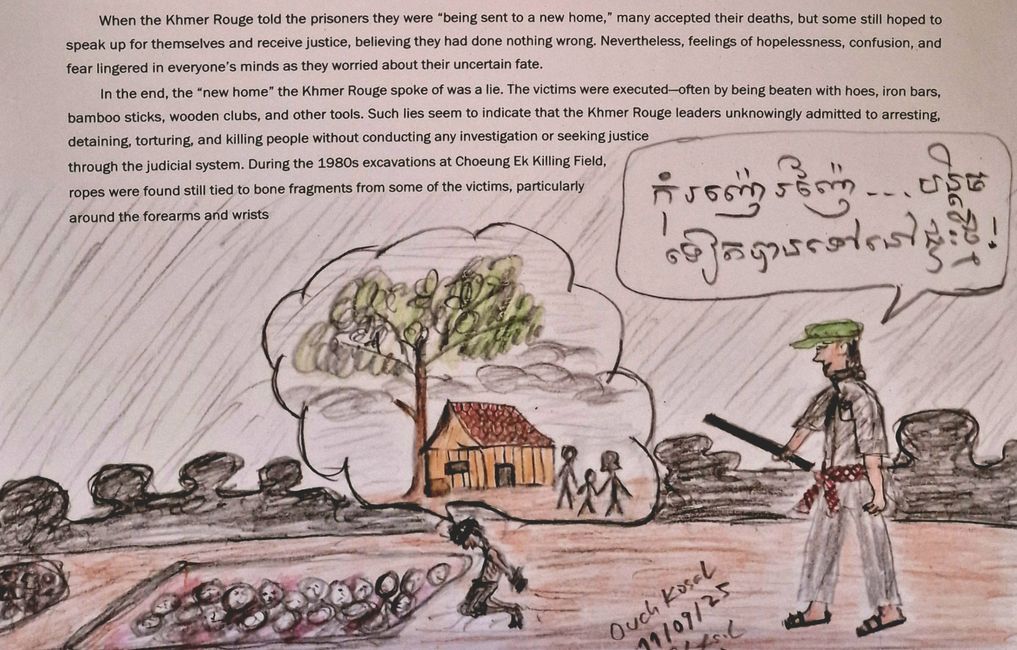 When the Khmer Rouge told the prisoners they were “being sent to a new home,” many accepted their deaths, but some still hoped to
speak up for themselves and receive justice, believing they had done nothing wrong. Nevertheless, feelings of hopelessness, confusion, and
fear lingered in everyone’s minds as they worried about their uncertain fate.
In the end, the “new home” the Khmer Rouge spoke of was a lie. The victims were executed—often by being beaten with hoes, iron bars,
bamboo sticks, wooden clubs, and other tools. Such lies seem to indicate that the Khmer Rouge leaders unknowingly admitted to arresting,
detaining, torturing, and killing people without conducting any investigation or seeking justice
through the judicial system. During the 1980s excavations at Choeung Ek Killing Field,
ropes were found still tied to bone fragments from some of the victims, particularly
around the forearms and wrists
កុំរញ៉េរញ៉ៃ... បន្តិច
ទៀតបានទៅនៅផ្ទះថ្មី!
Ouch Kosal
19/09/25